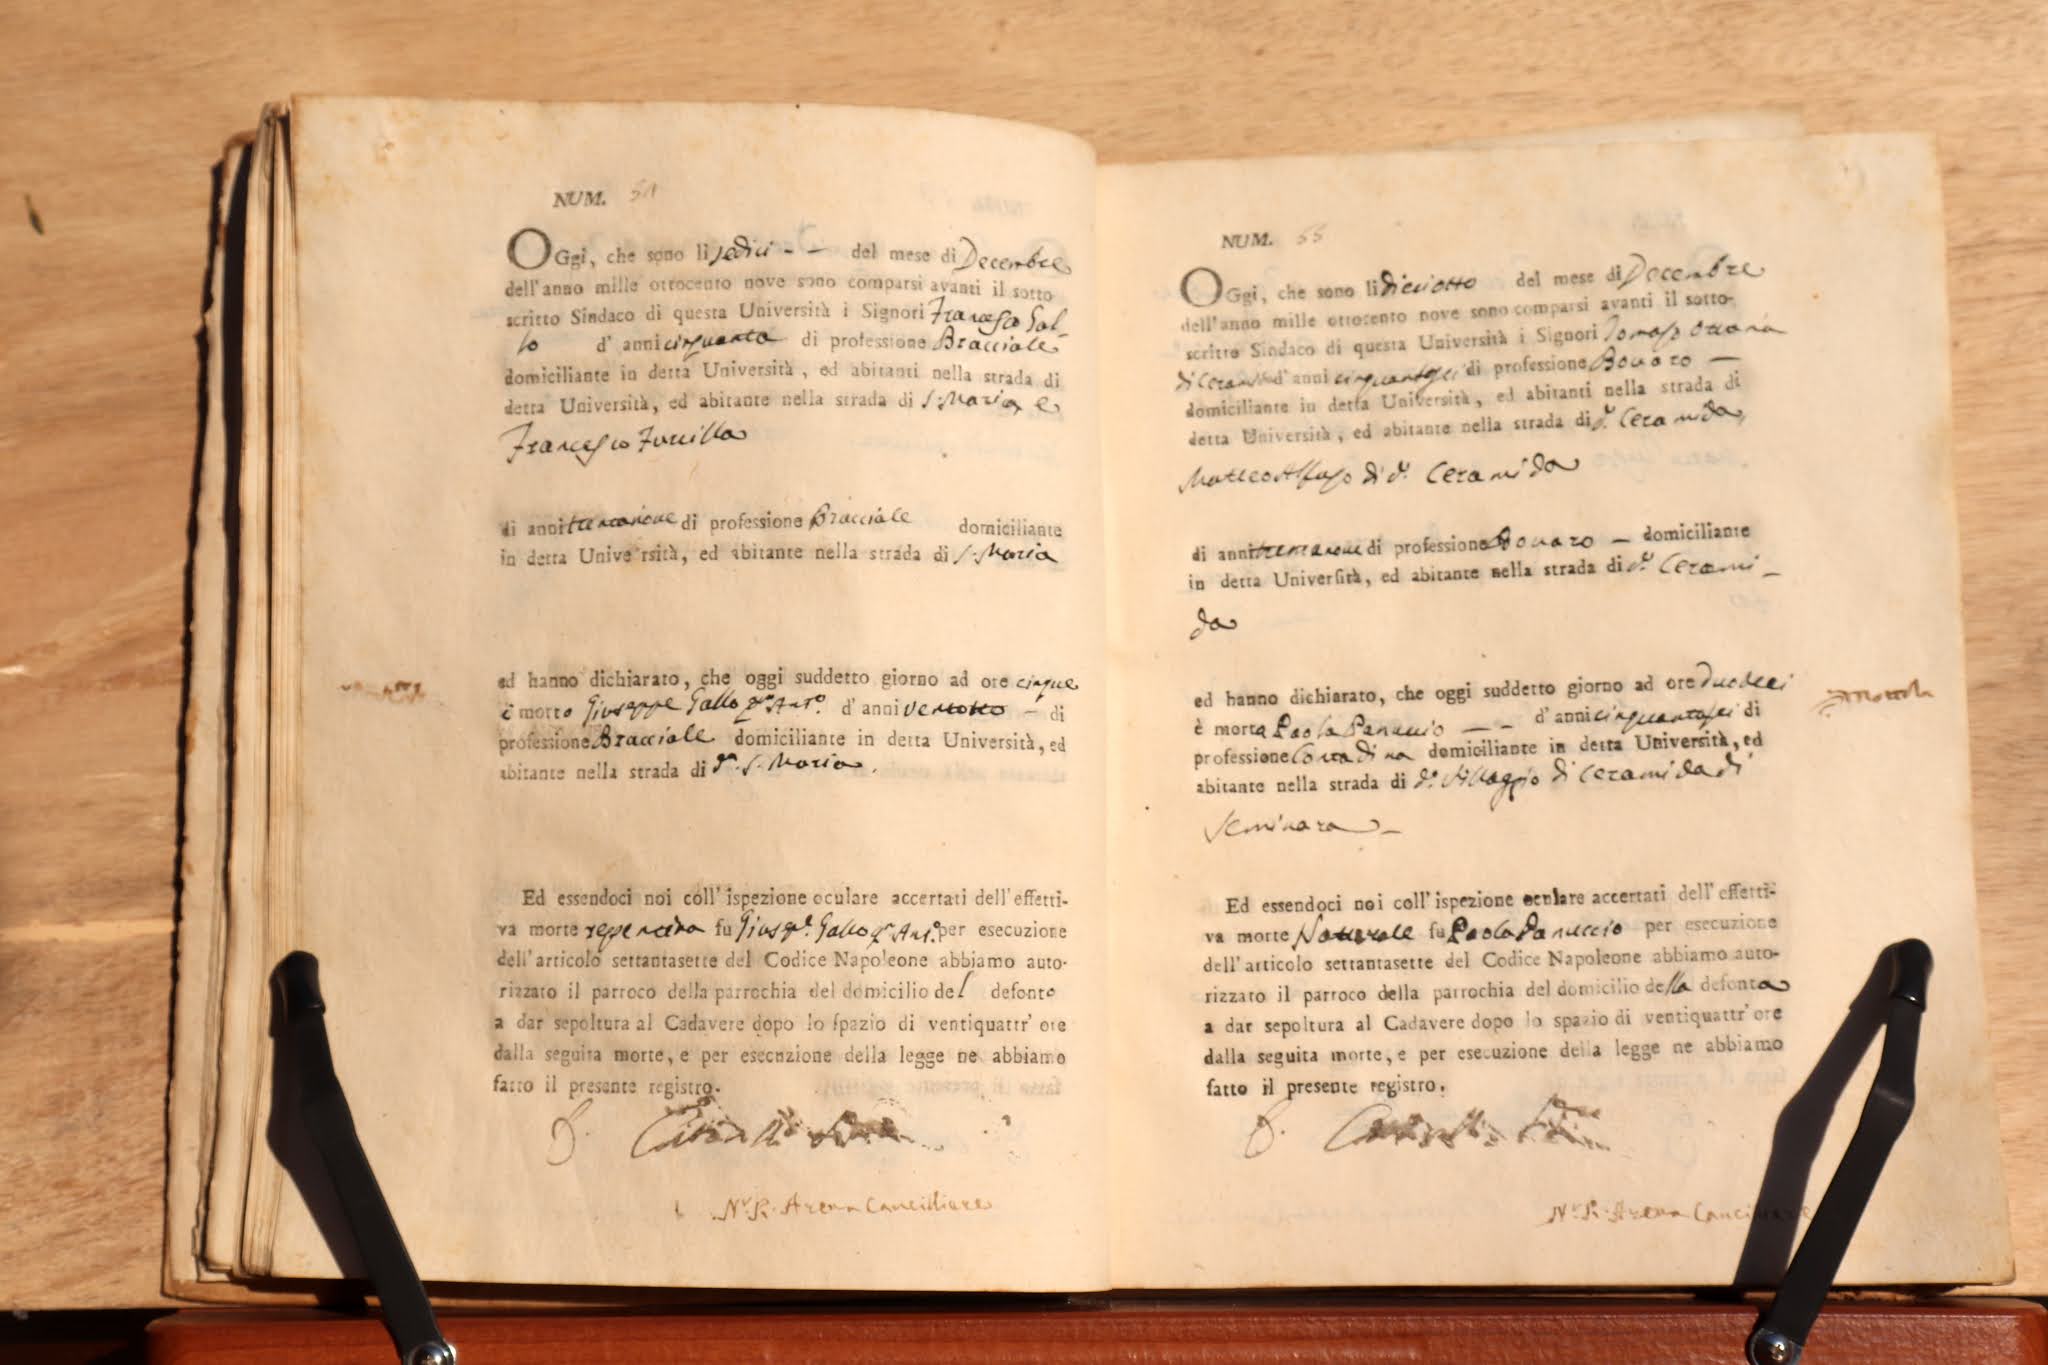 NUM. 54
OGgi, che sono li sedici -- del mese di Decembre
dell'anno mille ottocento nove sono comparsi avanti il sotto
scritto Sindaco di questa Università i Signori Francesco Gal-
lo d' anni cinquanta di professione Bracciale
domiciliante in detta Università, ed abitanti nella strada di
detta Università, ed abitante nella strada di S. Maria e
Francesco
di anni trentanove di professione Bracciale domiciliante
in detta Unive rsità, ed abitante nella strada di S. Maria
ed hanno dichiarato, che oggi suddetto giorno ad ore cinque
è morto Giuseppe Gallo qm Anto. d' anni ventotto - di
professione Bracciale domiciliante in detta Università, ed
abitante nella strada di da. S. Maria.
Ed essendoci noi coll' ispezione oculare accertati dell' effetti-
va morte repentina fu Giusepe. Gallo qm Anto. per esecuzione
dell'articolo settantasette del Codice Napoleone abbiamo auto-
rizzato il parroco della parrochia del domicilio del defonto
a dar sepoltura al Cadavere dopo lo spazio di ventiquattr' ore
dalla seguita morte, e per esecnzione della legge ne abbiamo
fatto il presente registro.
Nr. R. Arena Cancelliere
NUM. 55
OGgi, che sono li diciotto del mese di Decembre
dell'anno mille ottocento nove sono comparsi avanti il sotto-
scritto Sindaco di questa Università i Signori
di Ceramida d'anni cinquantasei di professione Bovaro -
domiciliante in detta Università, ed abitanti nella strada di
detta Università, ed abitante nella strada di do. Ceramida,
Matteo di do. Ceramida
di anni trentanove di professione Bovaro - domiciliante
in detta Università, ed abitante nella strada di do. Cerami-
da
ed hanno dichiarato, che oggi suddetto giorno ad ore duodeci
è morta Paola Panuccio -- d' anni cinquantasei di
professione Contadina domiciliante in detta Università, ed
abitante nella strada di do. Villaggio di Ceramida di
Seminara -
Ed essendoci noi coll' ispezione oculare accertati dell' effetti-
va morte Naturale fu Paola Panuccio per esecuzione
dell'articolo settantasette del Codice Napoleone abbiamo auto-
rizzato il parroco della parrochia del domicilio della defonta
a dar sepoltura al Cadavere dopo lo spazio di ventiquattr' ore
dalla seguita morte, e per esecuzione della legge ne abbiamo
fatto il presente registro.
Nr. R. Arena Cancelliere